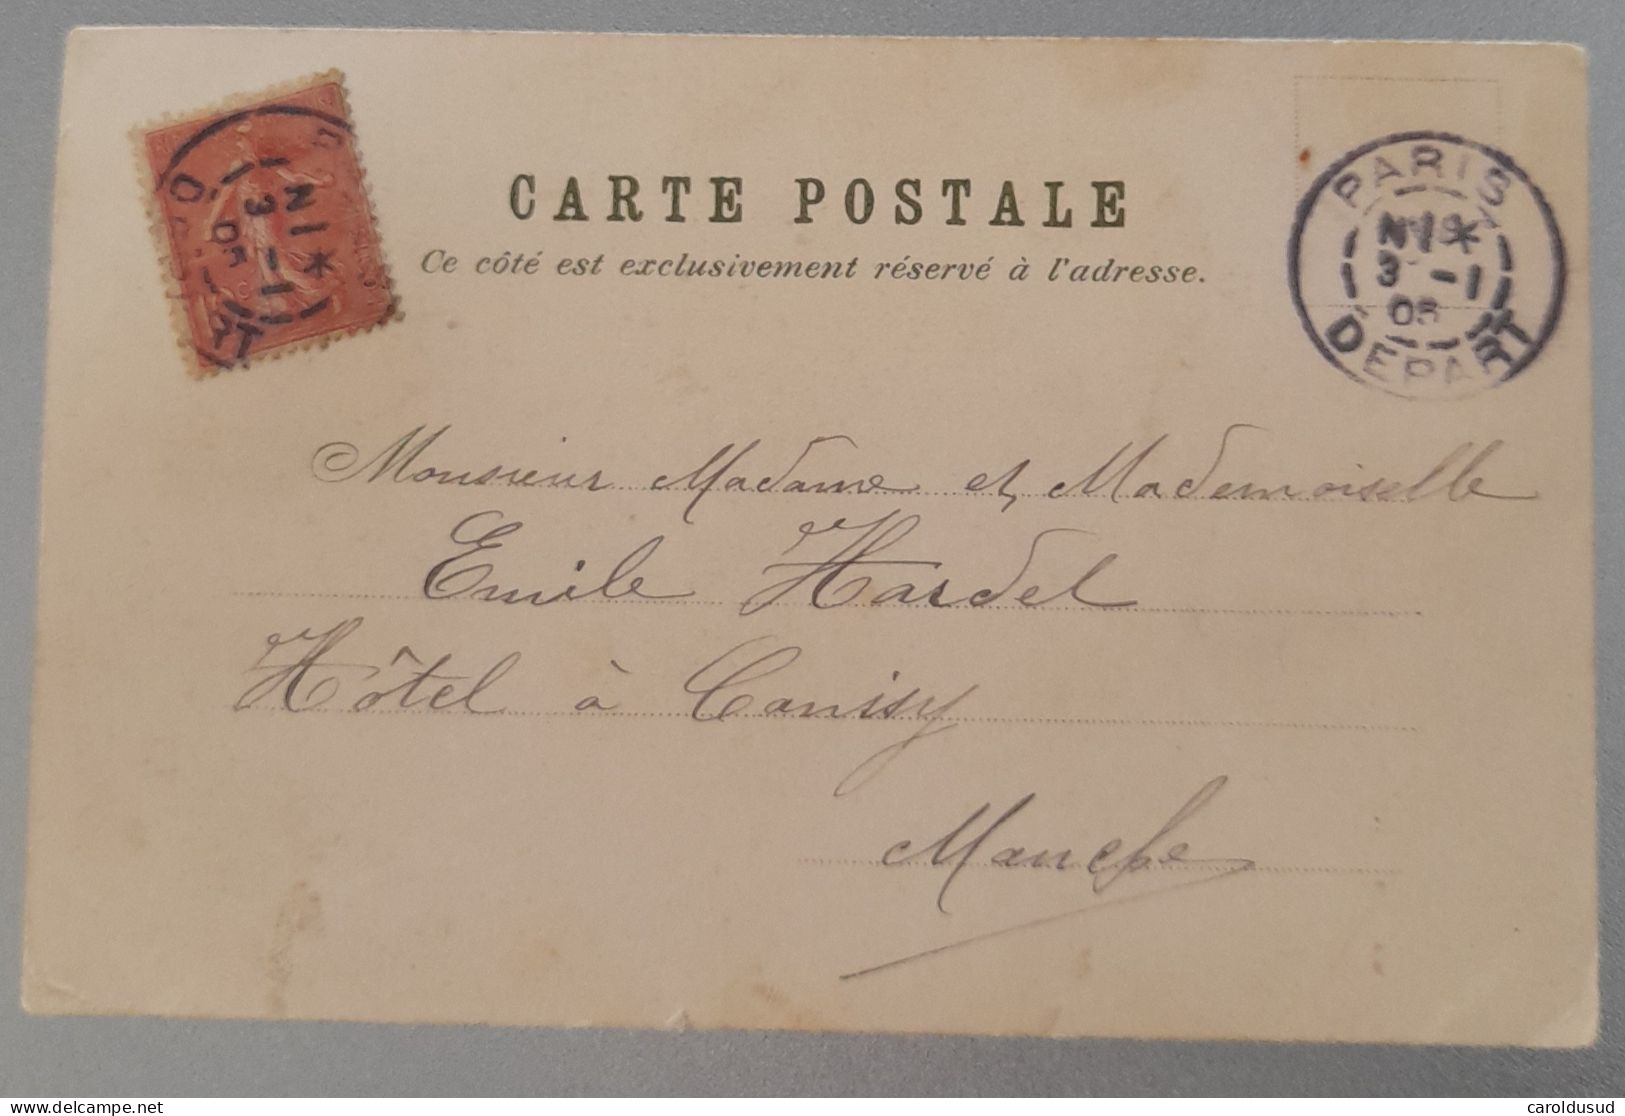 CARTE POSTALE
Ce côté est exclusivement réservé à l'adresse.
PARIS
3 -1
05
DEPART
3 -1
05
Monsieur Madame et Mademoiselle
Emile Hardel
Hôtel à Canisy
Manche
caroldusud